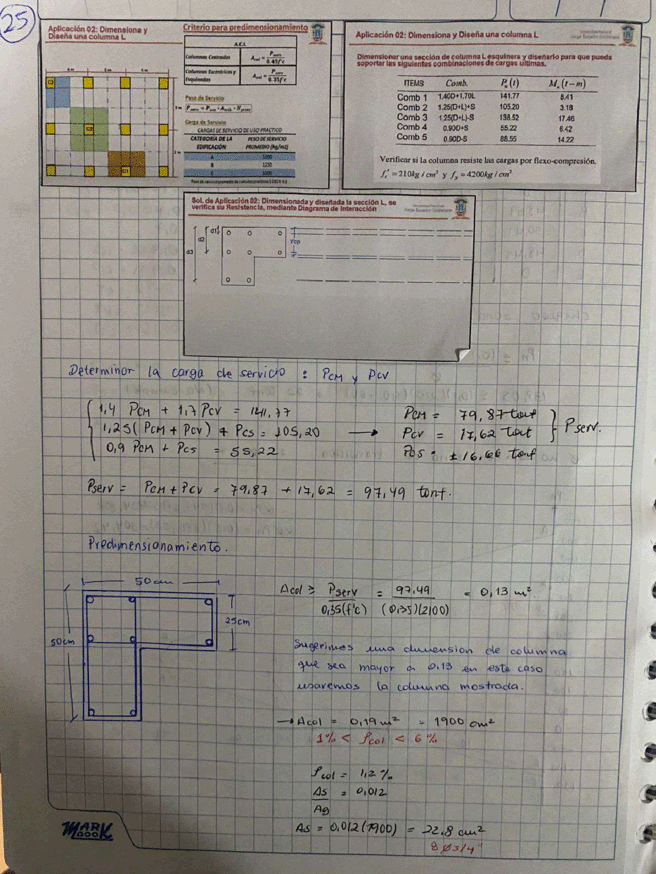 25
Aplicación 02: Dimensiona y
Diseña una columna L
Criterio para predimensionamiento
A.C.I.
Columnas Centradas
Columnas Excéntricas y
Esquinadas
Peso de Servicio
Carga de Servicio
CARGAS DE SERVICIO DE USO PRACTICO
CATEGORÍA DE LA EDIFICACIÓN PESO DE SERVICIO PROMEDIO (kg/m2)
A
B 1250
C
Aplicación 02: Dimensiona y Diseña una columna L
Dimensionar una sección de columna L esquinera y diseñarlo para que pueda
soportar las siguientes combinaciones de cargas ultimas.
ITEMS Comb. Pu(t) Mu(t-m)
Comb 1 1.40D+1.70L 141.77 8.41
Comb 2 1.25(D+L)+S 105.20 3.18
Comb 3 1.25(D+L)-S 138.52 17.46
Comb 4 0.90D+S 55.22 6.42
Comb 5 0.90D-S 88.55 14.22
Verificar si la columna resiste las cargas por flexo-compresión.
f'c = 210kg / cm² y fy = 4200kg / cm²
Sol. de Aplicación 02: Dimensionada y diseñada la sección L, se
verifica su Resistencia, mediante Diagrama de Interacción
d1
d2
d3
Yop
Determinar la carga de servicio : PCM y PCV
1,4 PCM + 1,7 PCV = 141,77
1,25(PCM + PCV) + PCS = 105,20
0,9 PCM + PCS = 55,22
PCM = 79,87 tonf
PCV = 17,62 Tonf
PCS = ±16,66 Tonf
Pserv.
Pserv = PCM + PCV = 79,87 + 17,62 = 97,49 tonf.
Predimensionamiento.
50cm
25cm
50cm
Acol ≥ Pserv / 0,35(f'c) = 97,49 / (0,35)(2100) = 0,13 m²
Sugerimos una dimension de columna
que sea mayor a 0,13 en este caso
usaremos la columna mostrada.
→ Acol = 0,19 m² = 1900 cm²
1% < ρcol < 6%
ρcol = 1,2%
As / Ag = 0,012
As = 0,012(1900) = 22,8 cm²
8 Ø3/4"
MARK
BOOK